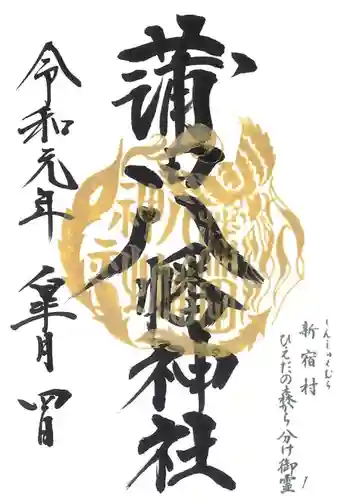 蒲田八幡神社
令和元年 皐月 四日
しんしゅくむら
新宿村
ひえだの森から分け御霊